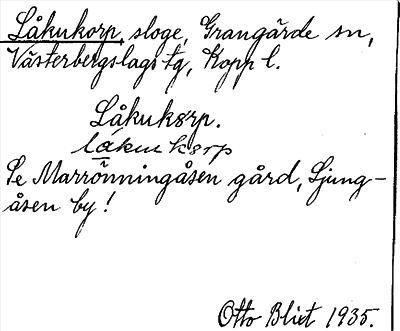 Låkukorp, sloge, Grangärde sn,
Västerbergslags tg, Kopp l.
Låkukɛrp.
Se Marrönningåsen gård, Ljung-
åsen by!
Otto Blixt 1935.